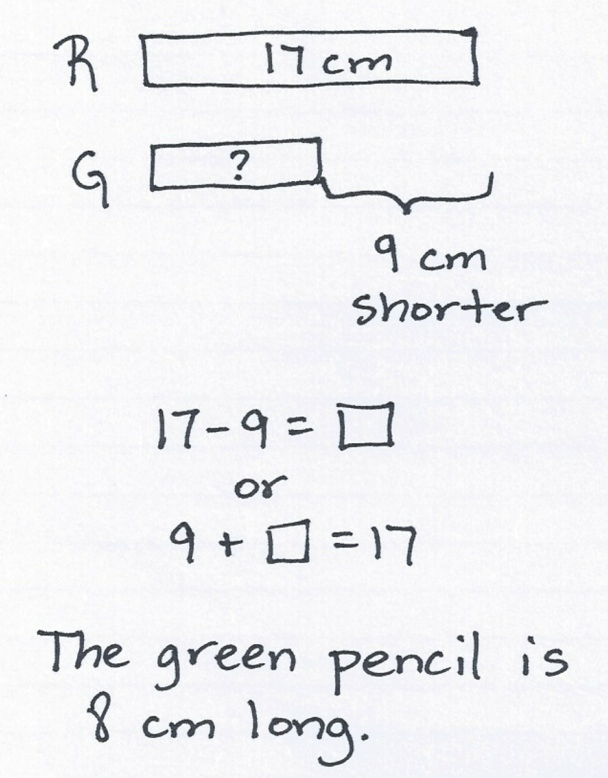 R 17 cm
G ?
9 cm
shorter
17 - 9 = □
or
9 + □ = 17
The green pencil is
8 cm long.